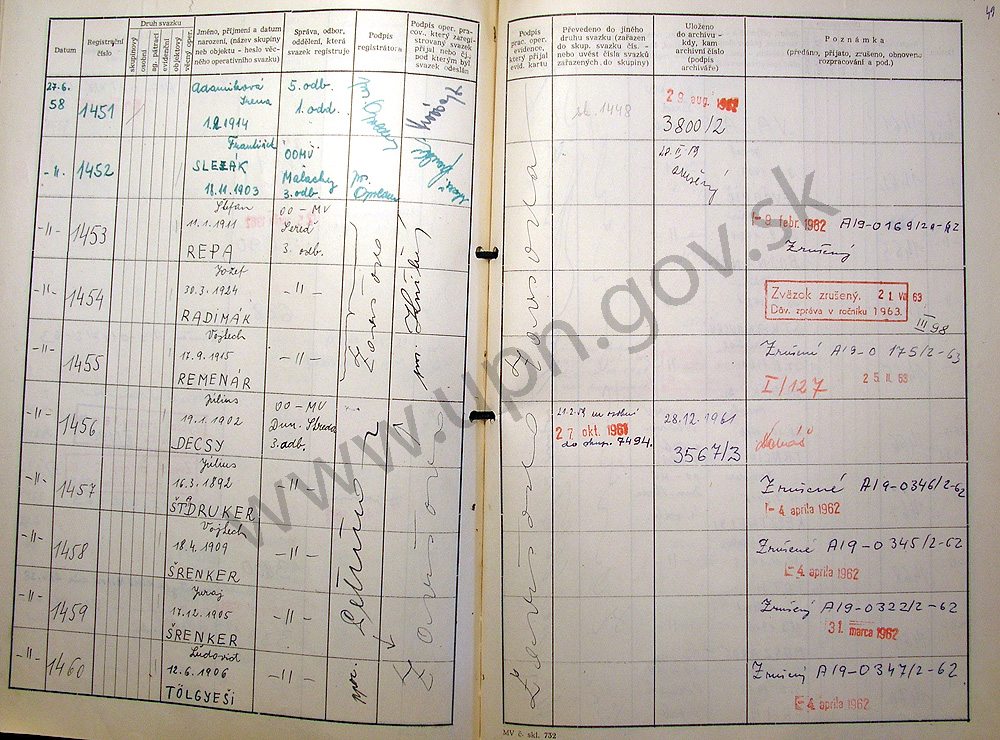 49
Datum
Registračni
číslo
Druh svazku
skupinový
osobní
ag. pátrací
evidenční
objektový
věcný oper.
Jméno, příjmení a datum
narození, (název skupiny
neb objektu - heslo věc-
ného operativního svazku)
Správa, odbor,
oddělení, která
svazek registruje
Podpis
registrátora
Podpis oper. pra-
cov., který zaregi-
strovaný svazek
přijal nebo č.j.
pod kterým byl
svazek odeslán
Podpis
prac. oper.
evidence,
který přijal
evid. kartu
Převedeno do jiného
druhu svazku (zařazen
do skup. svazku čís. -
nebo uvést čísla svazků
zařazených do skupiny)
Uloženo
do archivu -
kdy, kam
archivní číslo
(podpis
archiváře)
Poznámka
(předáno, přijato, zrušeno, obnoveno
rozpracování a pod.)
27.6.
58
1451
Adamíková
Irena
1.2.1914
5. odb.
1. odd.
sk. 1448
29. aug. 1962
3800/2
-"-
1452
František
SLEZÁK
18.11.1903
OOMV
Malacky
3. odb.
zrušený
-"-
1453
Štefan
11.1.1911
REPA
OO-MV
Sereď
3. odb.
- 9. febr. 1962
Zrušený
-"-
1454
Jozef
30.3.1924
RADIMÁK
-"-
Zväzok zrušený. 21 VIII 63
Dáv. zpráva v ročníku 1963.
III 98
-"-
1455
Vojtech
17.9.1915
REMENÁR
-"-
Zrušené A19-0175/2-63
I/127
25. II. 63
-"-
1456
Július
19.1.1902
DECSY
OO-MV
Dun. Streda
3. odb.
27 okt. 1961
do skup. 7494.
28.12.1961
3567/3
-"-
1457
Július
16.3.1892
ŠTDRUKER
-"-
Zrušené A19-0346/2-62
- 4. apríla 1962
-"-
1458
Vojtech
18.4.1909
ŠRENKER
-"-
Zrušené A19-0345/2-62
- 4. apríla 1962
-"-
1459
Juraj
17.12.1905
ŠRENKER
-"-
Zrušený A19-0322/2-62
31. marca 1962
-"-
1460
Ľudovít
12.6.1906
TÖLGYEŠI
-"-
Zrušený A19-0347/2-62
- 4. apríla 1962
MV č. skl. 732
www.upn.gov.sk